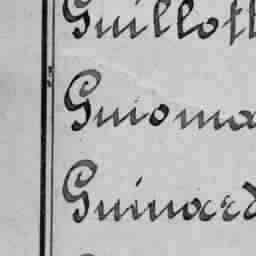 Guilloth
Guioma
Guinard